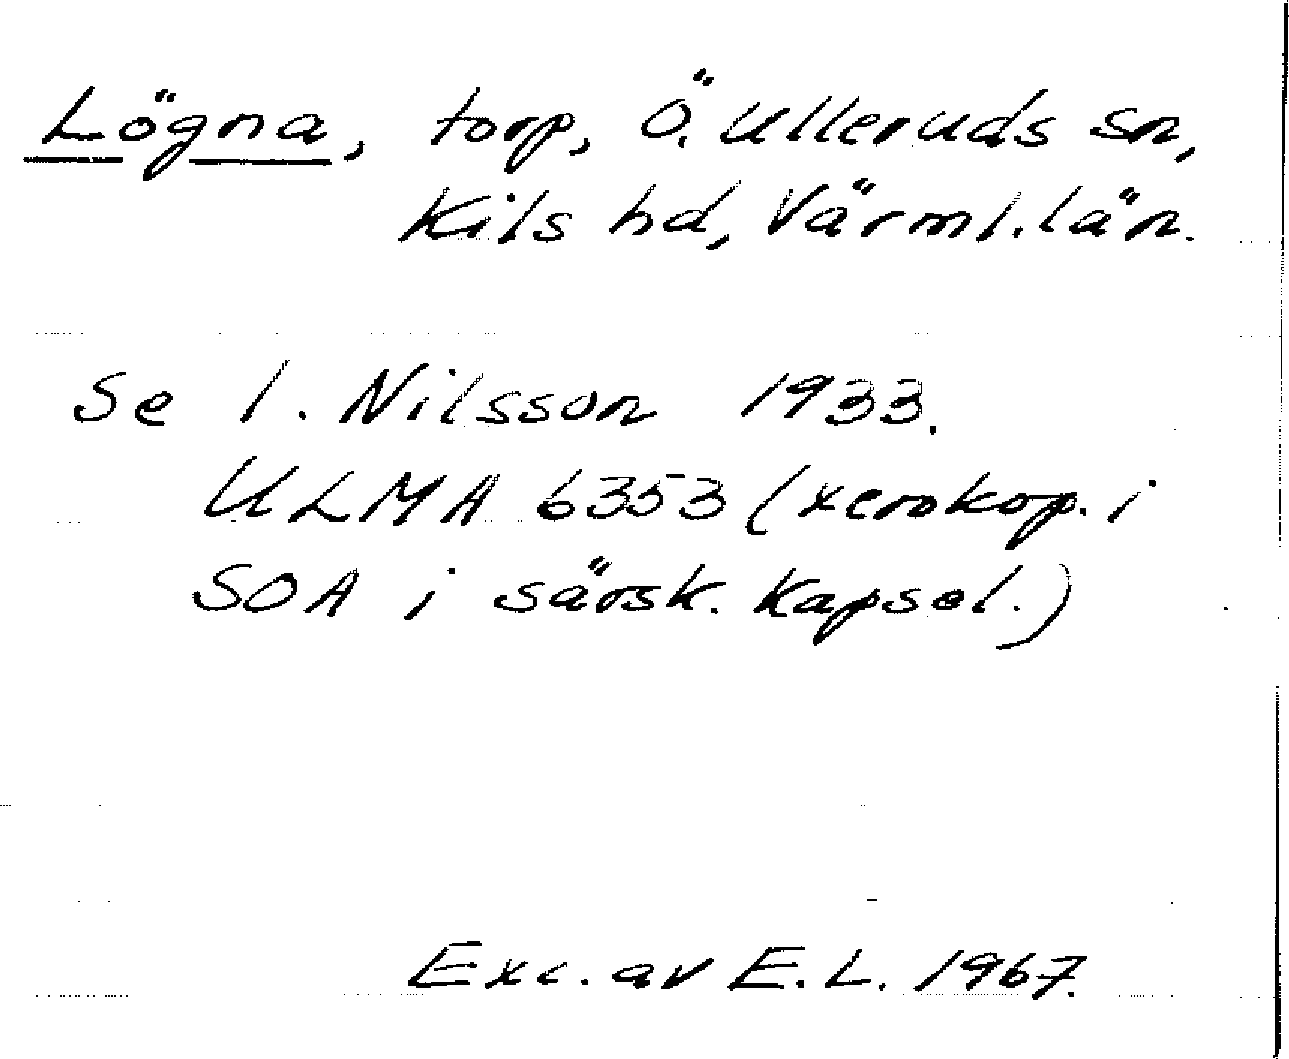 Lögna, torp, Ö. Ulleruds sn,
Kils hd, Värml. län.
Se I. Nilsson 1933.
ULMA 6353 (xerokop. i
SOA i särsk. kapsel.)
Exc. av E. L. 1967.